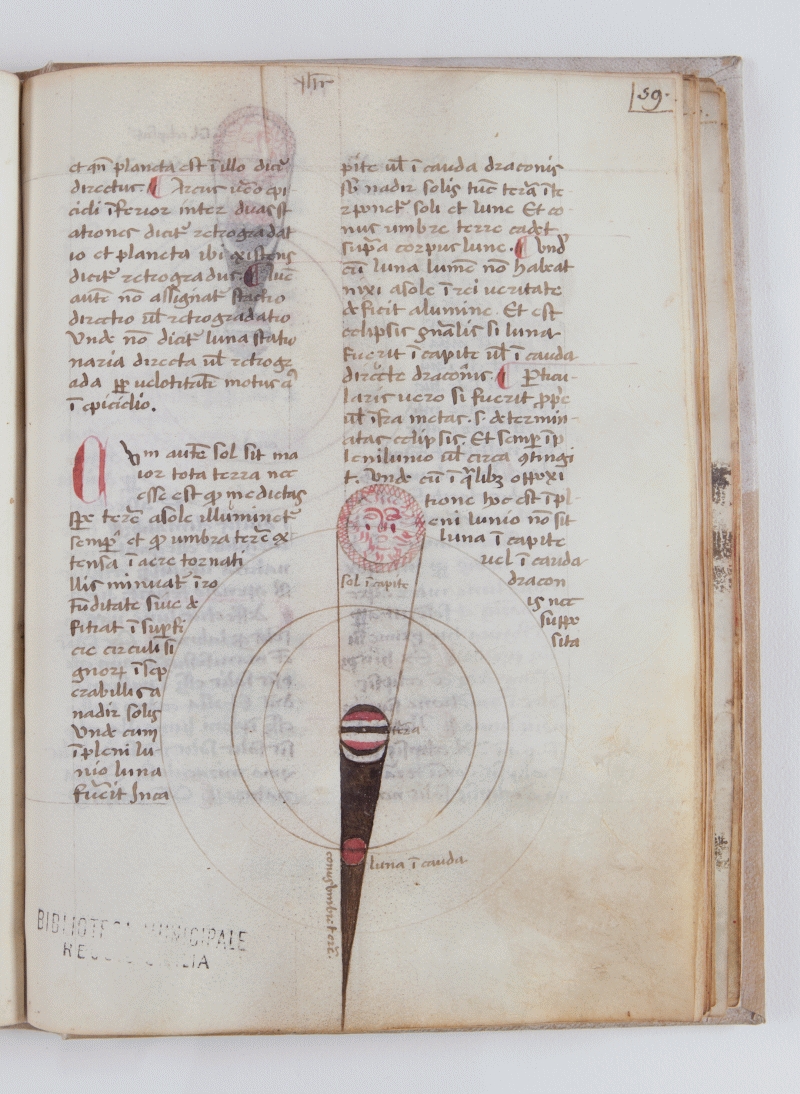 59.
et qn̄ planeta est ī illo dicit̄
directus. Arcus uēo epi
cicli īferior inter duas st
ationes dicit̄ retrogradat
io et planeta ibi existens
dicit̄ retrogradus. Lune
autē no assignat̄ statio
directio ul̄ retrogradatio
Vnde non dicit̄ luna statio
naria directa ul̄ retrogr
ada ꝓp uelotitatē motus eiꝰ
ī epiciclo.
Cvm autē sol sit ma
ior tota terra nec
esse est qꝫ medietas
spe terē a sole illuminet̄
semꝑ et qꝫ umbra terē ex
tensa ī aere tornati
llis minuat̄ ī ro
tūditate siue de
fitiat ī suꝑfi
cie circuli si
gnoꝝ īsep
erabillis a
nadir solis
Vnde cum
ī pleni lu
nio luna
fūcit īn ca
pite ul̄ ī cauda draconis
sb̄ nadir solis tūc tera īte
rponet̄ soli et lune Et co
nus umbre terre cadet
supͣa corpus lune. Vnd
cū luna lumē nō habeat
nixi a sole ī rei ueritate
deficit a lumine. Et est
eclipsis gn̄alis si luna
fuerit ī capite ul̄ ī cauda
directe draconis. Particu
laris uero si fuerit ꝓpe
ul̄ īfra metas .s. determin
atas eclipsis. Et semꝑ ī p
lenilunio ul̄ circa ꝯtingi
t. Vnde cū ī q̄libꝫ oppoxi
tione hoc est ī pl
eni lunio nō sit
luna ī capite
uel ī cauda
dracon
is nec
suppo
sita
sol ī capite
tera
luna ī cauda
conus umbre terē.
BIBLIOTECA MUNICIPALE
REGGIO EMILIA